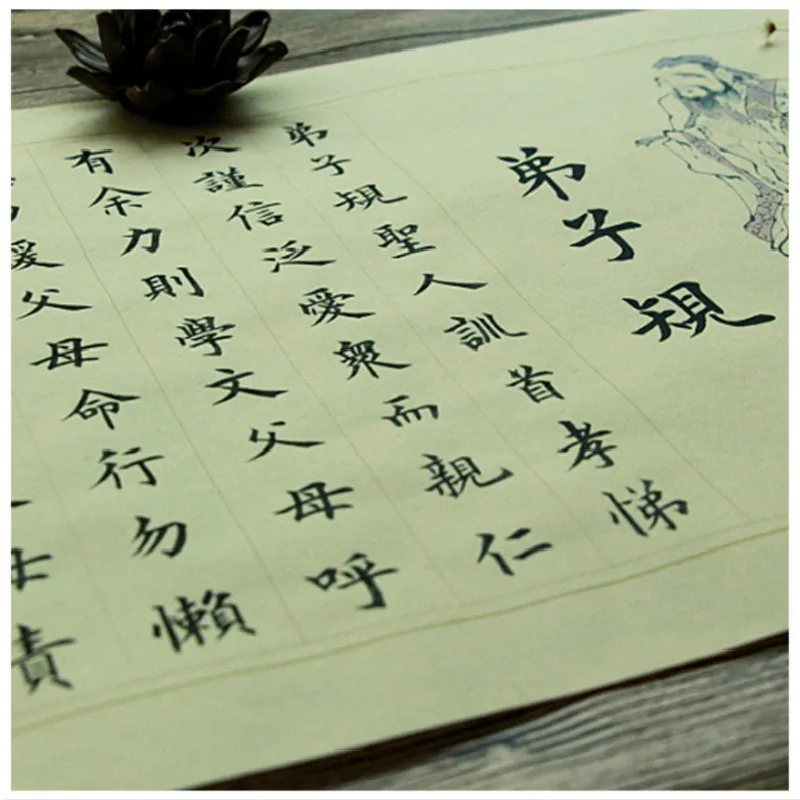 弟子規
弟子規聖人訓首孝悌
次謹信泛愛眾而親仁
有余力則學文父母呼
緩父母命行勿懶
責